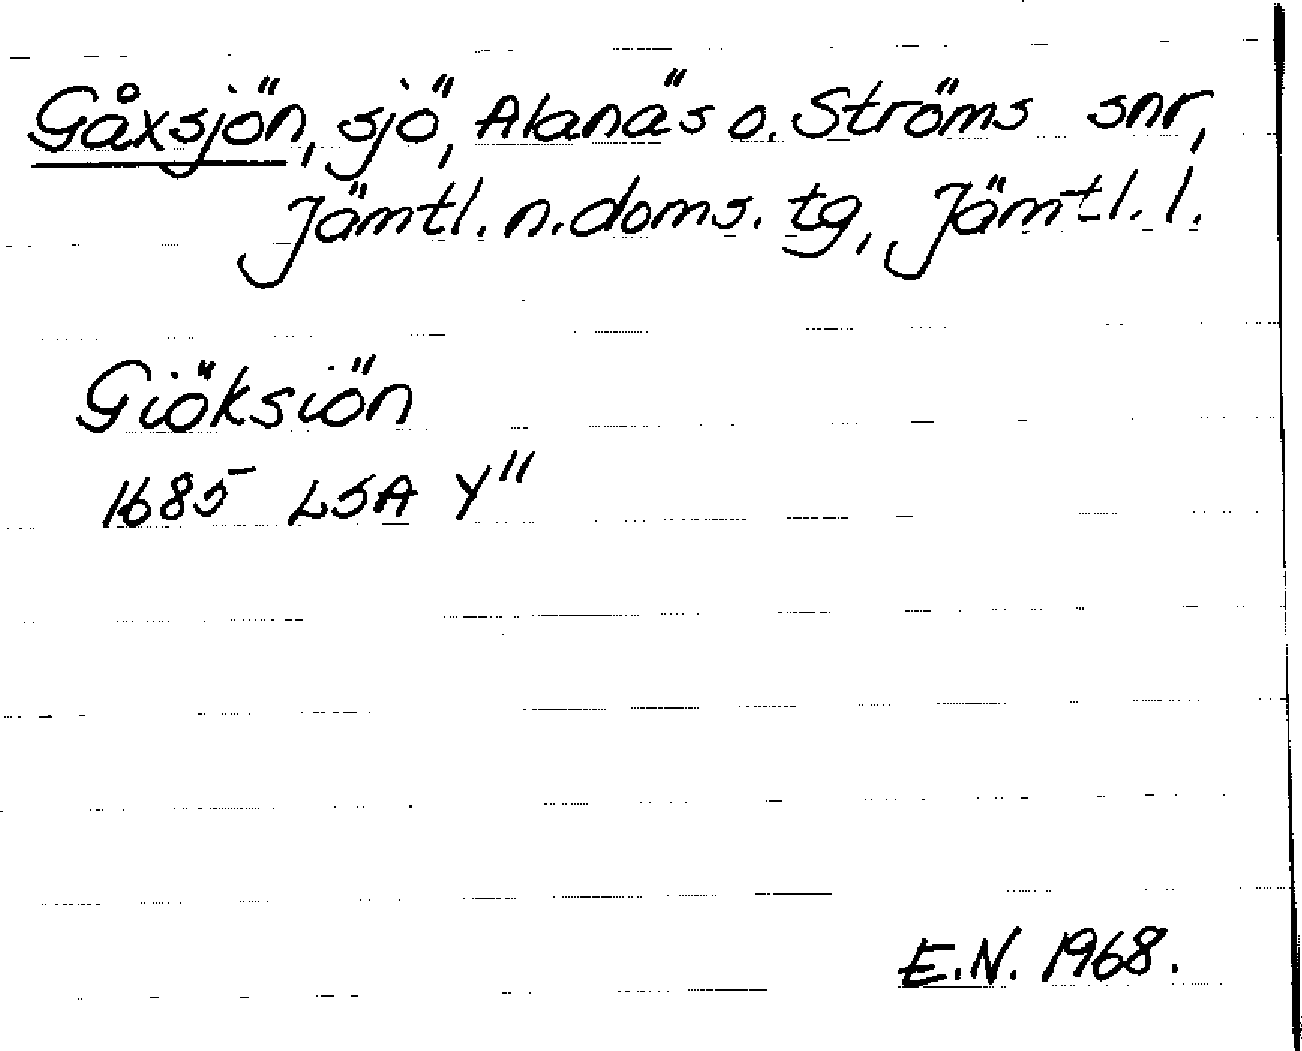 Gåxsjön, sjö, Alanäs o. Ströms snr,
Jämtl. n. doms. tg, Jämtl. l.
Giöksiön
1685 LSA Y"
E.N. 1968.